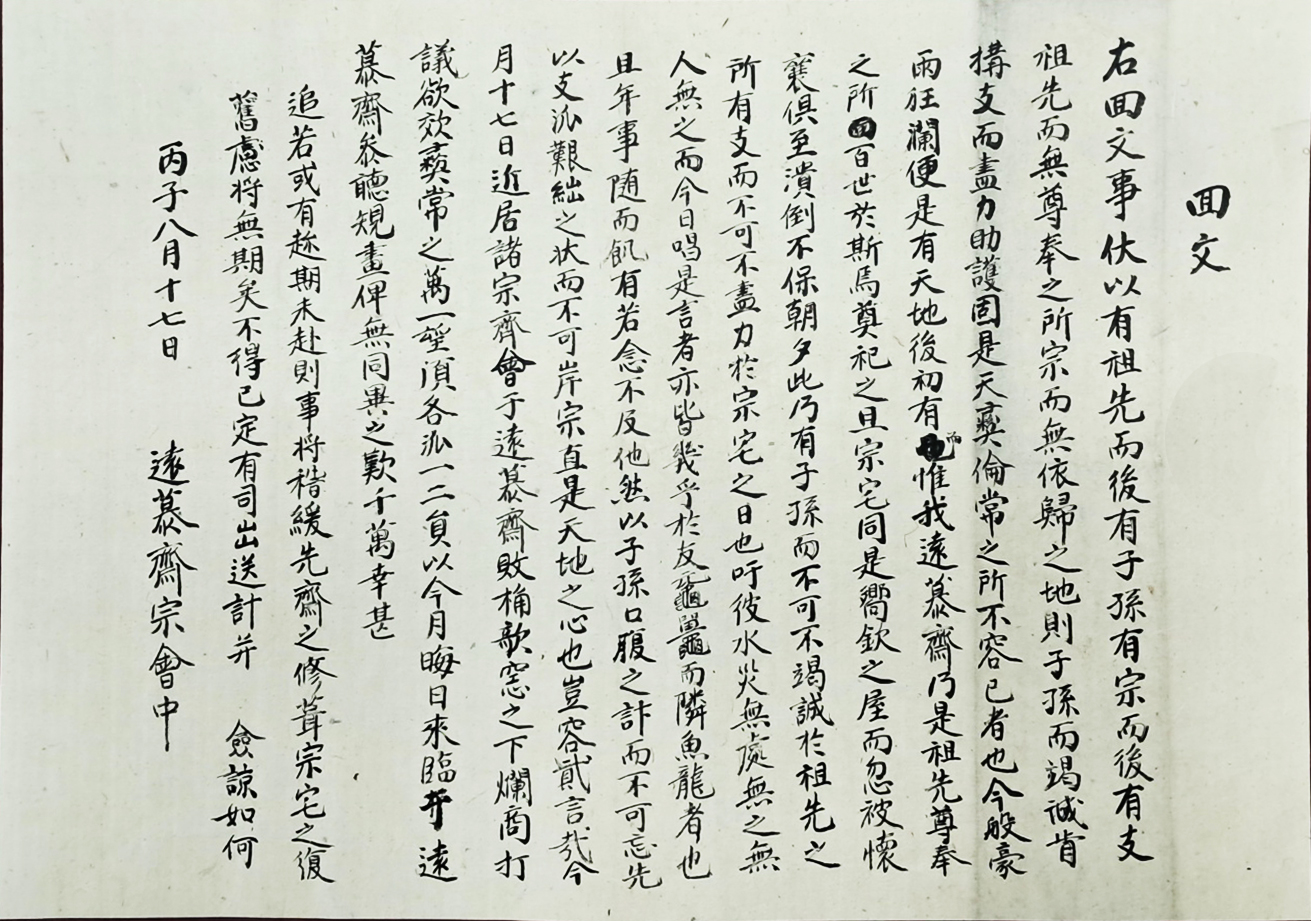 回文
右回文事伏以有祖先而後有子孫有宗而後有支
祖先而無尊奉之所宗而無依歸之地則子孫而竭誠肯
搆支而盡力助護固是天彛倫常之所不容已者也今般豪
雨狂瀾便是有天地後初有而惟我遠慕齋乃是祖先尊奉
之所回百世於斯焉奠祀之且宗宅同是嚮欽之屋而忽被懷
襄俱至潰倒不保朝夕此乃有子孫而不可不竭誠於祖先之
所有支而不可不盡力於宗宅之日也吁彼水災無處無之無
人無之而今日唱是言者亦皆幾乎於友黿鼉而隣魚龍者也
且年事随而飢有若念不反他然以子孫口腹之計而不可忘先
以支派艱絀之状而不可岸宗直是天地之心也豈容貳言哉今
月十七日近居諸宗齊會于遠慕齋敗桷欹窓之下爛商打
議欲效彛常之萬一玆湏各派一二員以今月晦日來臨于遠
慕齋叅聽規畫俾無同異之歎千萬幸甚
追若或有趂期未赴則事将稽緩先齋之修葺宗宅之復
舊慮将無期矣不得已定有司出送計并 僉諒如何
丙子八月十七日 遠慕齋宗會中